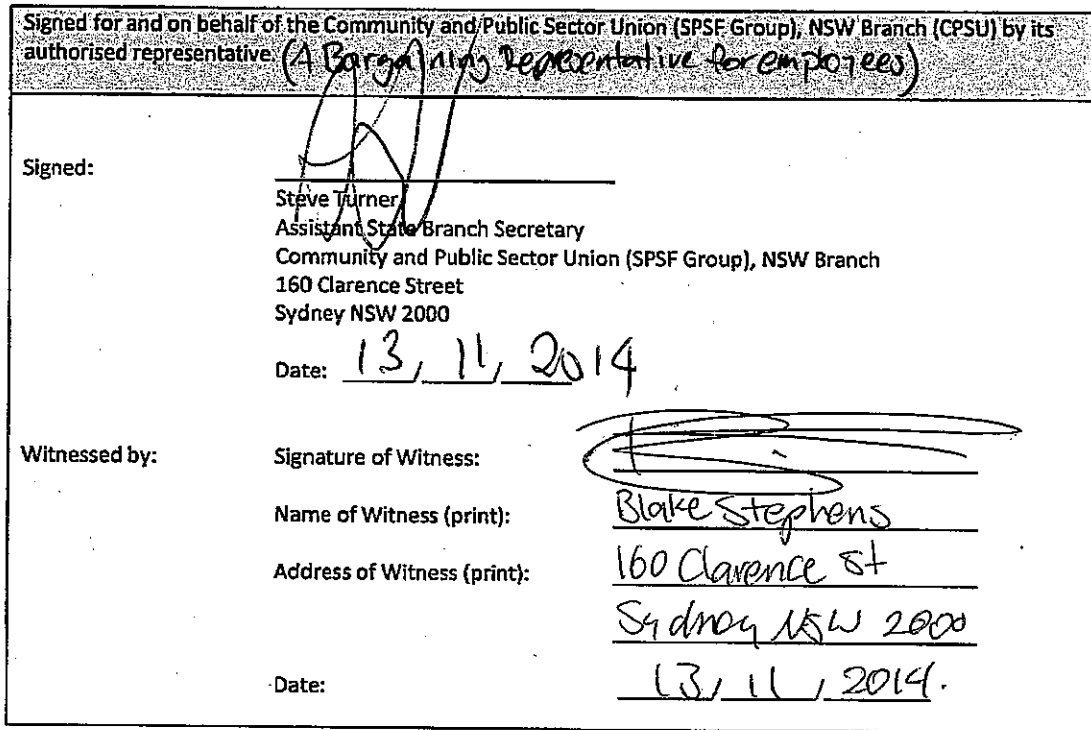 Signed for and on behalf of the Community and Public Sector Union (SPSF Group), NSW Branch (CPSU) by its
authorised representative. (A Bargaining Representative for employees)
Signed:
Steve Turner
Assistant State Branch Secretary
Community and Public Sector Union (SPSF Group), NSW Branch
160 Clarence Street
Sydney NSW 2000
Date: 13, 11, 2014
Witnessed by: Signature of Witness:
Name of Witness (print): Blake Stephens
Address of Witness (print): 160 Clarence St
Sydney NSW 2000
Date: 13, 11, 2014.